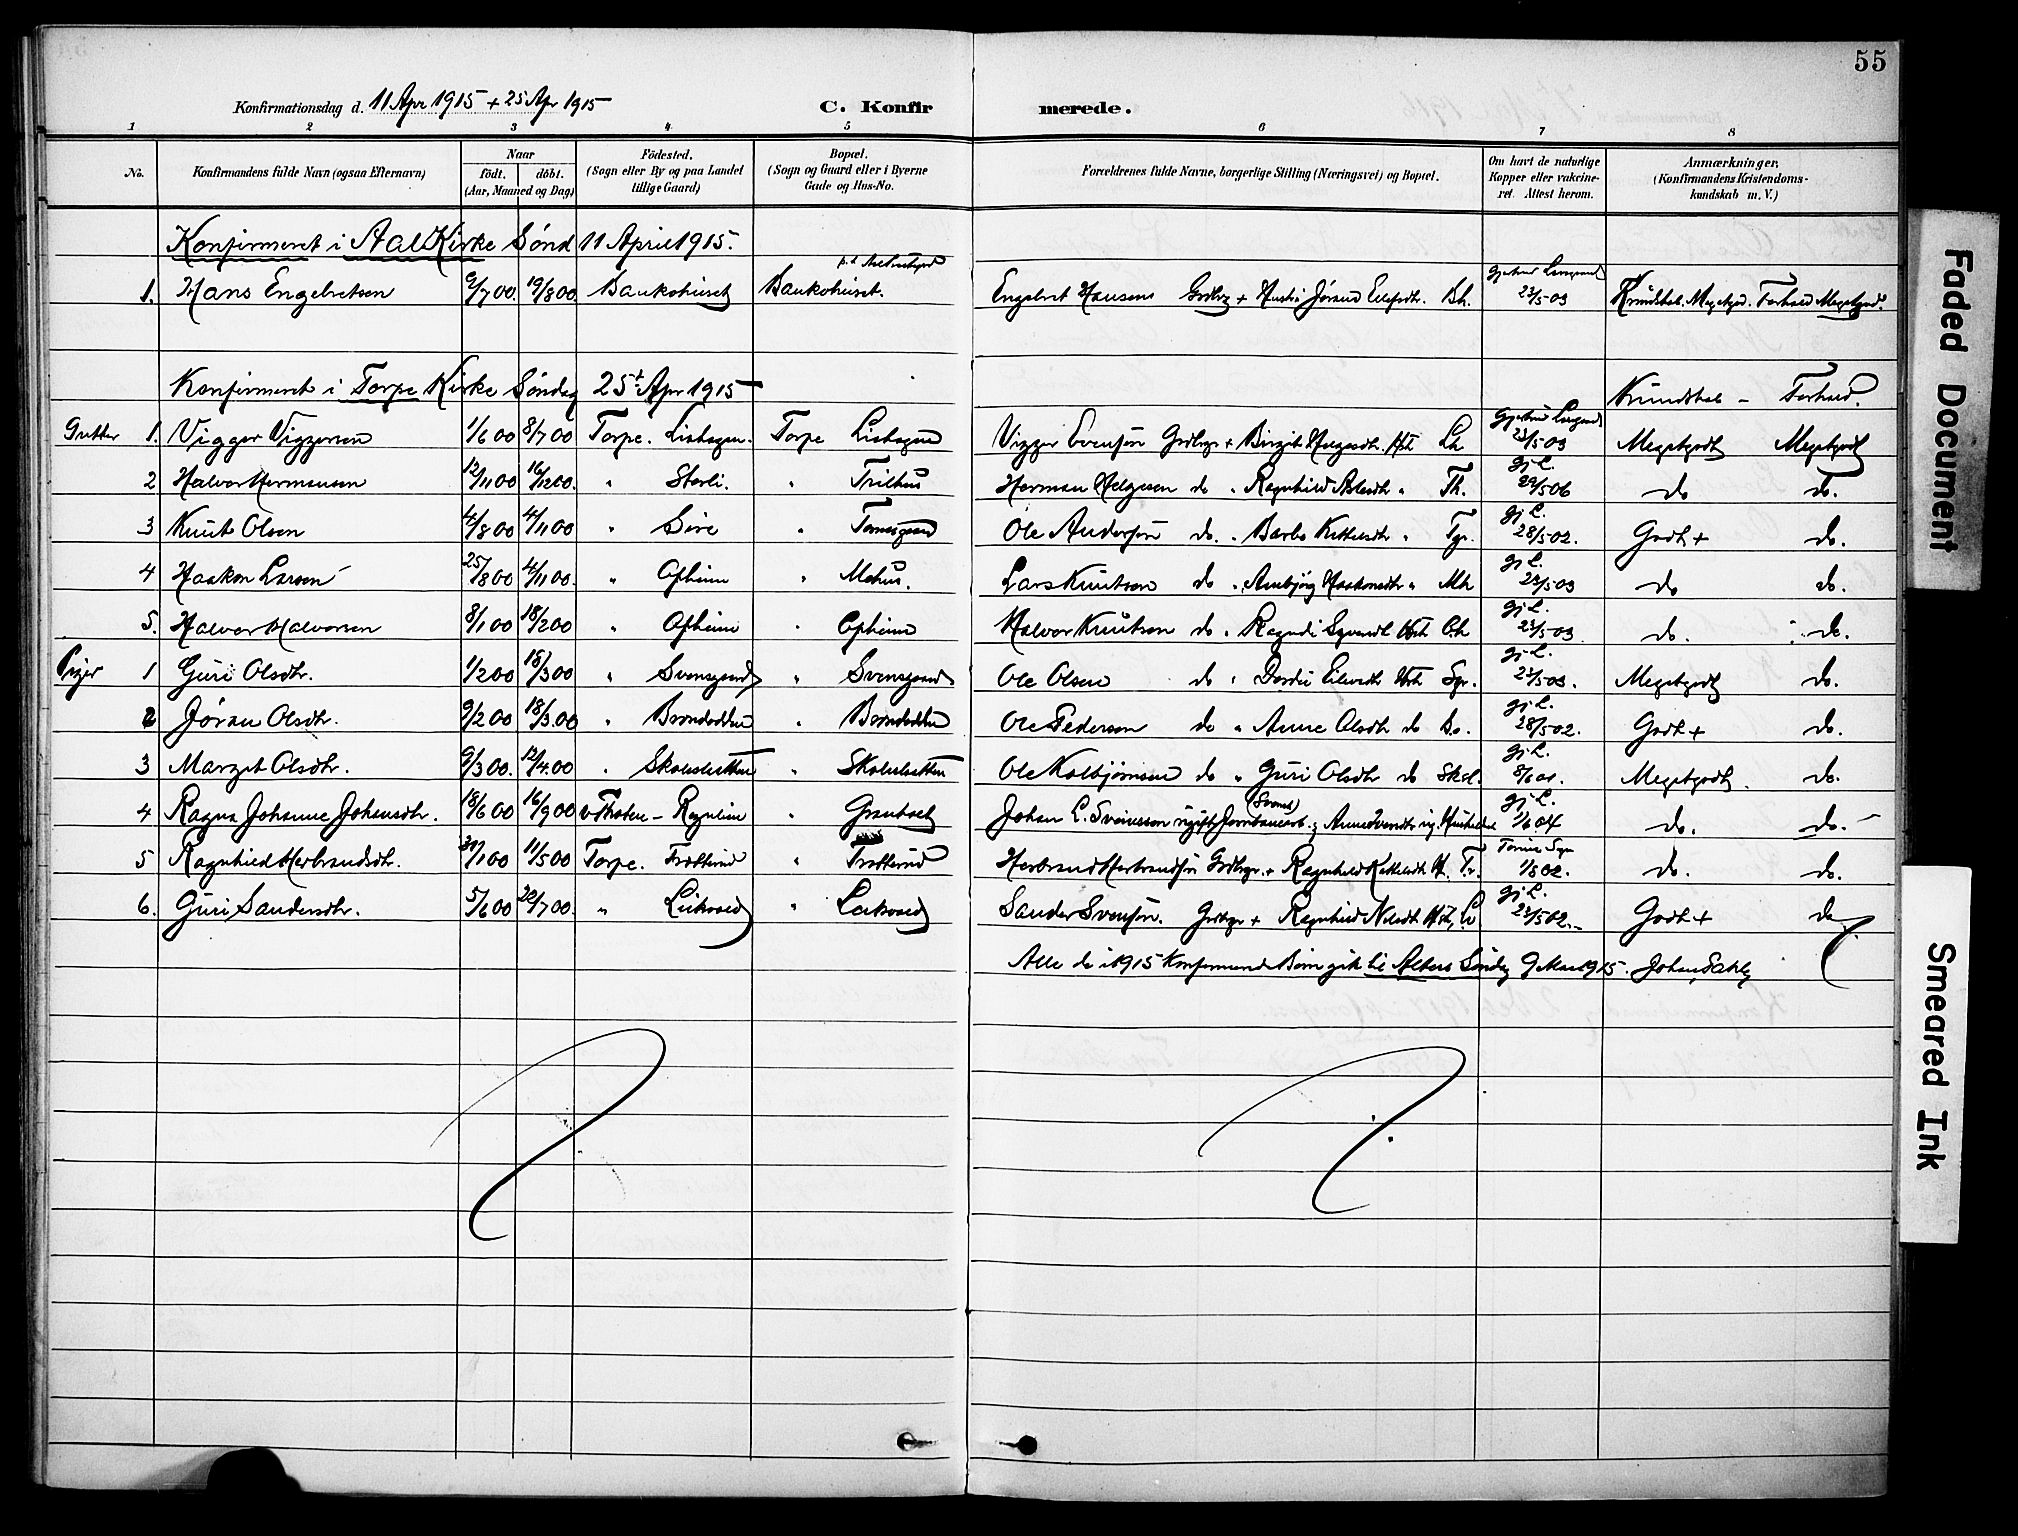 55
Konfirmationsdag d. 11 Apr 1915 + 25 Apr 1915 C. Konfirmerede.
1 2 3 4 5 6 7 8
No. Konfirmandens fulde Navn (ogsaa Efternavn) Naar födt. döbt. (Aar, Maaned og Dag) Födested. (Sogn eller By og paa Landet tillige Gaard) Bopæl. (Sogn og Gaard eller i Byerne Gade og Hus-No. Forældrenes fulde Navne, borgerlige Stilling (Næringsvei) og Bopæl. Om havt de naturlige Kopper eller vakcineret. Attest herom. Anmærkninger, (Konfirmandens Kristendomskundskab m. V.)
Konfirmeret i Aal Kirke Sønd 11 April 1915.
1. Hans Engebretsen 9/7 00. 19/8 00 Baukohuset Baukohuset. Engebret Hansen Grdbr + Hustru Jøran Bh. 23/5-03 Kundskab. Megetgod. Forhold Megetgod.
Konfirmeret i Torpe Kirke Søndag 25 Apr 1915 Kundskab - Forhold.
Gutter 1. Vigger Viggersen 1/6 00 8/7 00 Torpe. Lishagen. Torpe Lishagen Vigger Evensen Grdbgr + Birgit Helgesdtr. Hst Lh 23/5 03 Megetgodt Megetgodt
2 Halvor Hermansen 12/11 00 16/12 00. " Storli. " Trilhus Herman Helgesen do " Ragnhild Aslesdtr " Th. gj L. 29/5 06 do do.
3 Knut Olsen 4/8 00 4/11 00 " Sire " Torsegaard Ole Andersen do. " Barbo Kittelsdtr " Tgr. gj L. 28/5-02. Godt + do.
4 Haakon Larsen 25/8 00 4/11 00. " Opheim " Mehus. Lars Knutsen do " Ambjørg Haakonsdtr " Mh gj L. 23/5 03 do do.
5. Halvor Halvorsen 8/1 00 18/2 00 " Opheim " Opheim Halvor Knutsen do " Hst Oh gj L. 23/5-03 do. do.
Piger 1 Guri Olsdtr. 1/2 00 18/3 00 " Svensgaard " Svensgaard Ole Olsen do " Dordi Eilevsdtr Hst Sgr. gj L. 23/5 03. Megetgodt do.
2 Jøran Olsdtr. 9/2 00 18/3. 00 " " Ole Pederson do " Anne Olsdtr do Bo. gj L. 28/5 02. Godt + do.
3 Margit Olsdtr. 9/3 00. 12/4. 00 " Skolesletten " Skolesletten Ole Kolbjørnsen do " Guri Olsdtr do Skol. gj L. Megetgodt. do.
4 Ragna Johanne Johansdtr. 18/6 00 16/9 00 Grønhset Johan L. Svensson (Svensk) ugift gj L. 1/6 04 do. do.
5 Ragnhild Herbrandsdtr. 31/1 00 11/5 00 Torpe. Trøtterud " Trøtterud Herbrand Herbrandsen Grdbgr. + Ragnhild Kittelsdtr H. Tr. 1/8 02. do. do.
6. Guri Sandersdtr. 5/6 00 22/7 00. " Leikvold " Leikvold Sander Svensen. Grdbgr + Ragnhild Nilsdtr Hst, Lv. gj L. 23/5 02. Godt + do
Alle de i 1915 Konfirmerede Børn gik til Alters Søndag 9 Mai 1915. Johan Sakly
Faded Document
Smeared Ink